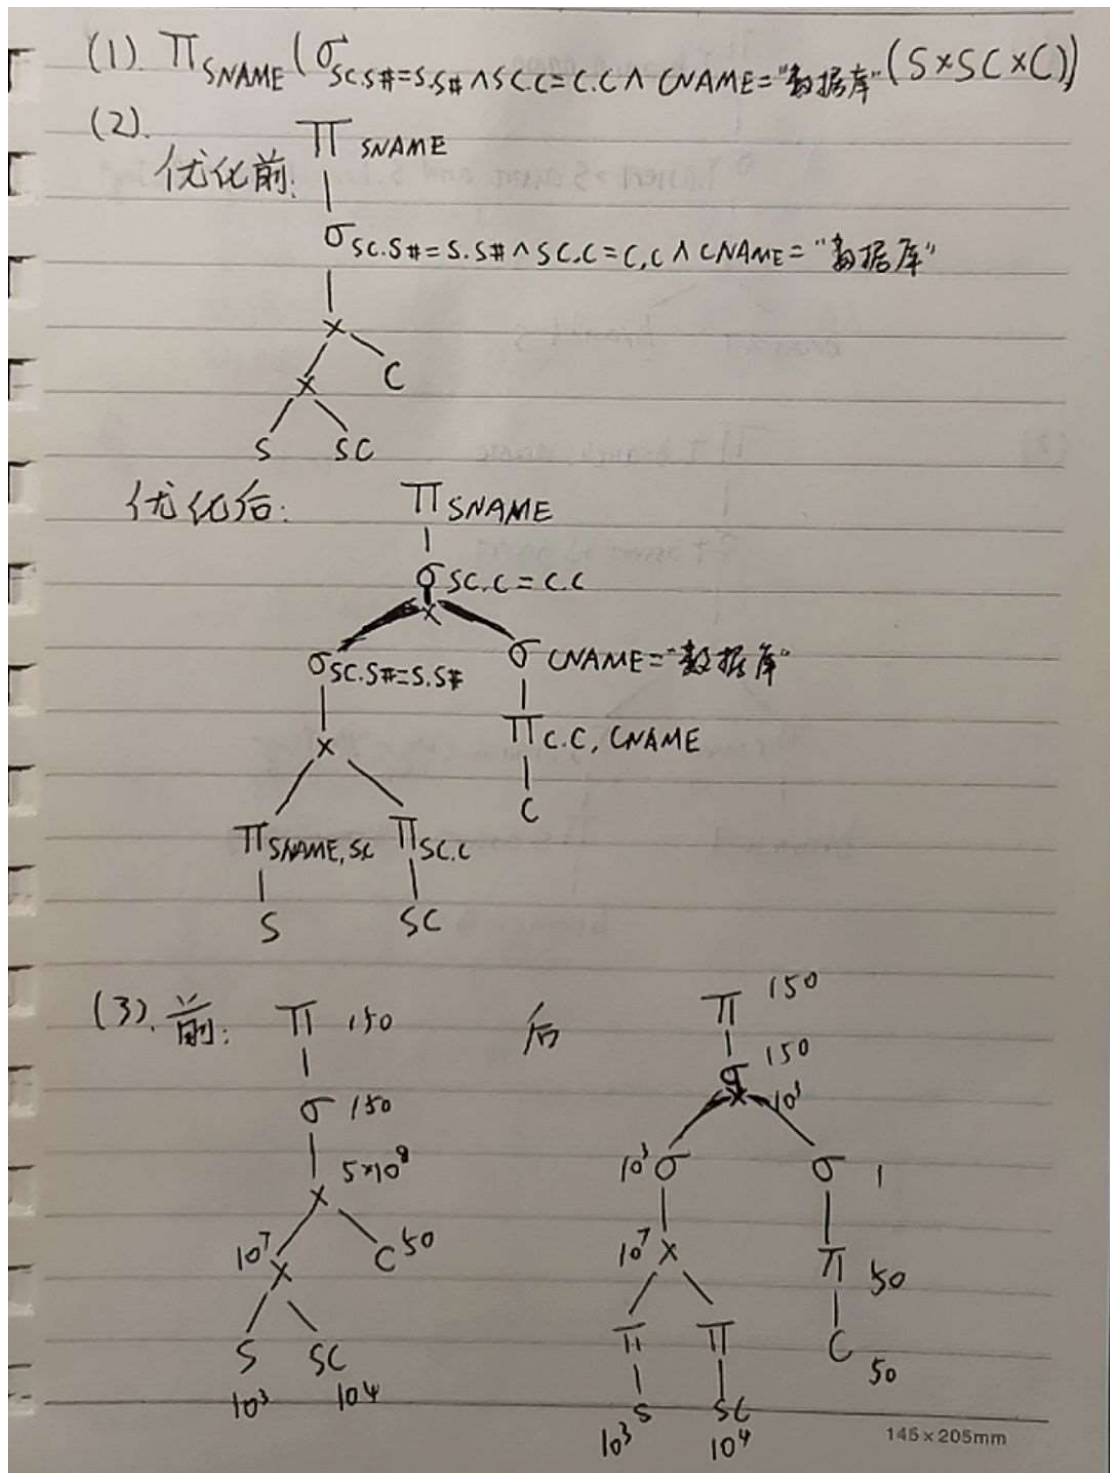 (1). Π SNAME (σ SC.S#=S.S# ∧ SC.C=C.C ∧ CNAME="数据库" (S×SC×C))
(2).
优化前: Π SNAME
σ SC.S#=S.S# ∧ SC.C=C.C ∧ CNAME="数据库"
×
× C
S SC
优化后: Π SNAME
σ SC.C=C.C
×
σ SC.S#=S.S# σ CNAME="数据库"
× Π C.C, CNAME
C
Π SNAME, SC Π SC.C
S SC
(3). 前: Π 150 后 Π 150
σ 150 σ 150
× 10³
5×10⁸ 10³ σ σ 1
×
10⁷ × C 50 10⁷ × Π 50
S SC Π Π C 50
10³ 10⁴ 10³ S SC 10⁴
145×205mm